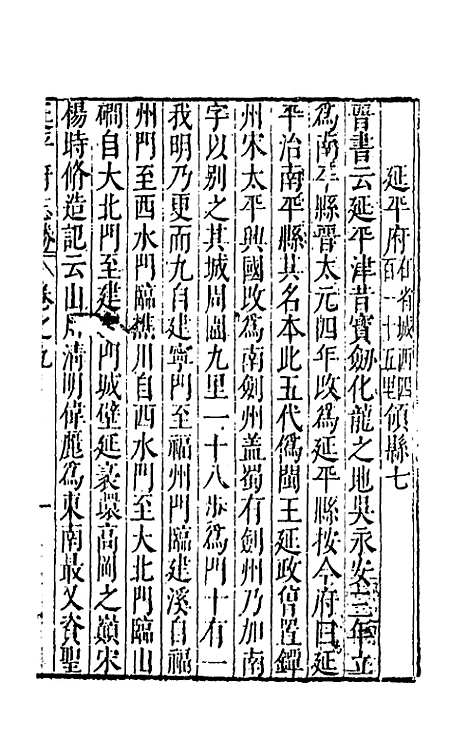 延平府在省城西四百一十五里領縣七
晉書云延平津昔寶劒化龍之地吳永安三年立
爲南平縣晉太元四年改爲延平縣按今府曰延
平治南平縣其名本此五代爲閩王延政曾置鐔
州宋太平興國改爲南劍州蓋蜀有劍州乃加南
字以别之其城周圍九里一十八步爲門十有一
我明乃更而九自建寧門至福州門臨建溪自福
州門至西水門臨樵川自西水門至大北門臨山
磵自大北門至建門城壁延袤環高岡之巔宋
楊時脩造記云山川清明偉麗爲東南最又資聖
延平府志勝 卷之九 一